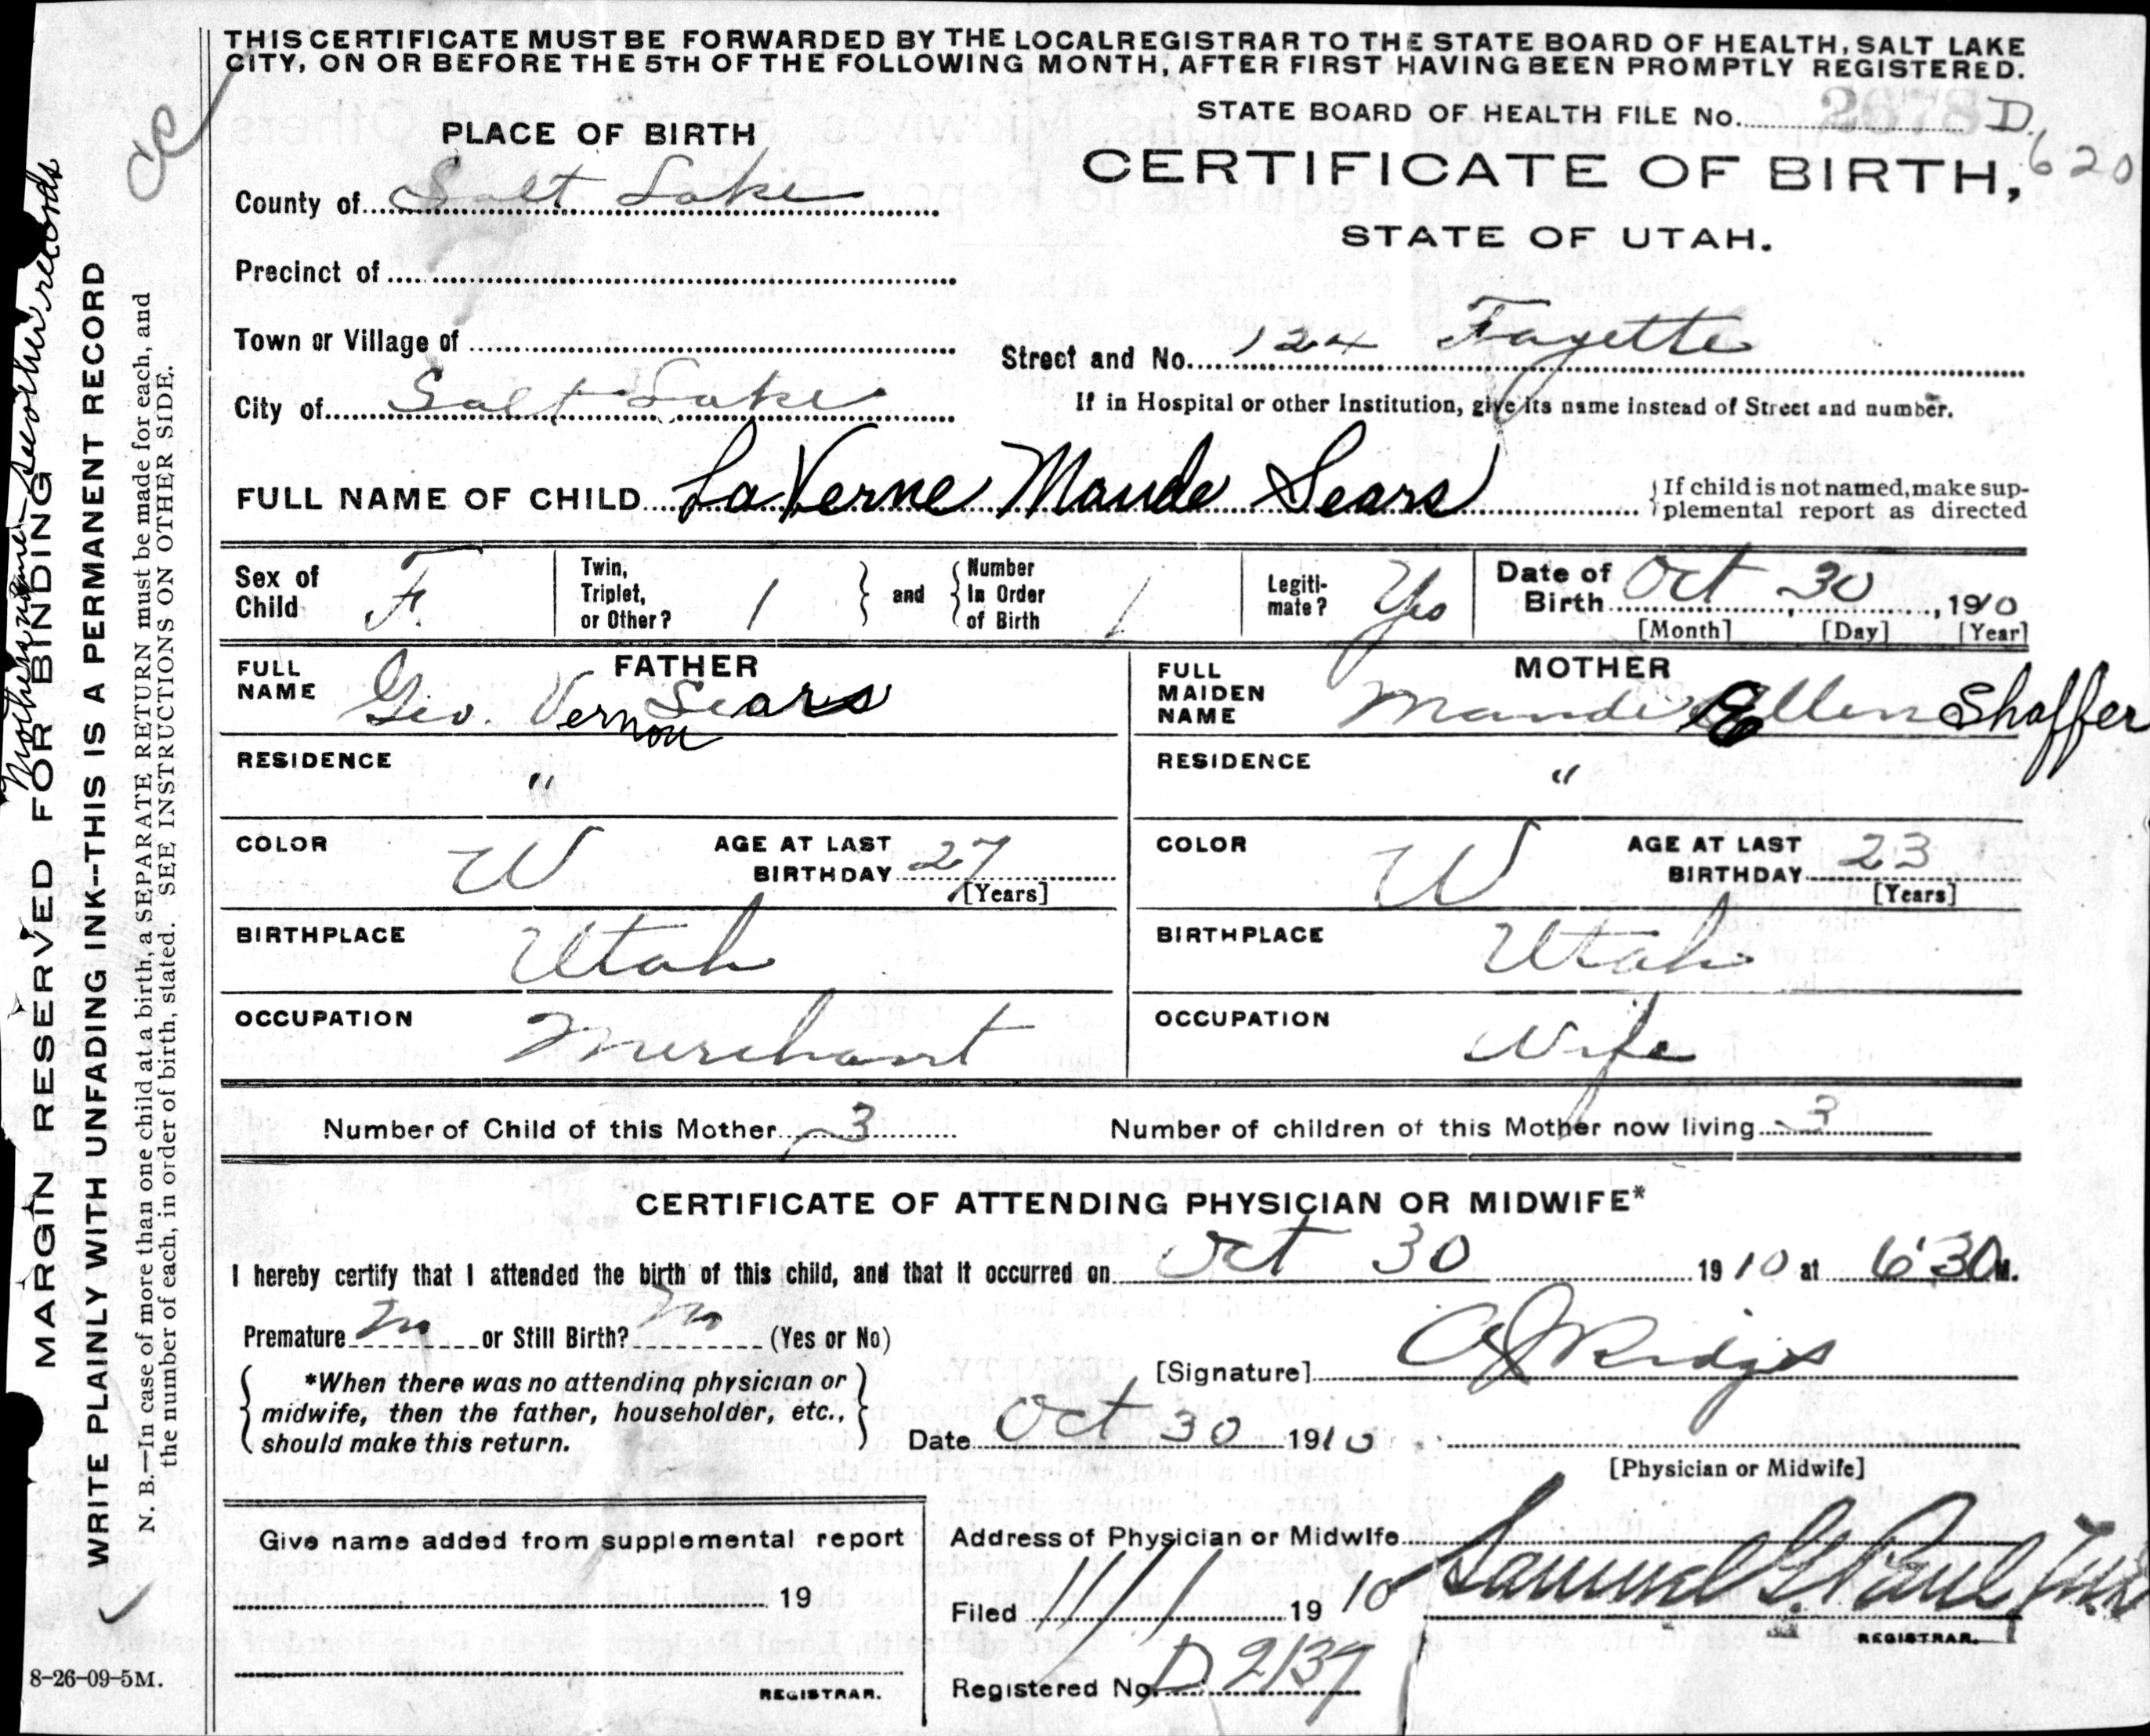 THIS CERTIFICATE MUST BE FORWARDED BY THE LOCAL REGISTRAR TO THE STATE BOARD OF HEALTH, SALT LAKE
CITY, ON OR BEFORE THE 5TH OF THE FOLLOWING MONTH, AFTER FIRST HAVING BEEN PROMPTLY REGISTERED.
STATE BOARD OF HEALTH FILE No. 2678 D
620
PLACE OF BIRTH
CERTIFICATE OF BIRTH,
STATE OF UTAH.
County of Salt Lake
Precinct of
Town or Village of
Street and No. 124 Fayette
City of Salt Lake
If in Hospital or other Institution, give its name instead of Street and number.
FULL NAME OF CHILD LaVerne Maude Sears
If child is not named, make sup-
plemental report as directed
Sex of Child F.
Twin, Triplet, or Other? 1
and
Number In Order of Birth 1
Legiti-mate? Yes
Date of Birth Oct 30, 1910
[Month] [Day] [Year]
FATHER
FULL NAME Geo. Vernon Sears
RESIDENCE "
COLOR W
AGE AT LAST BIRTHDAY 27
[Years]
BIRTHPLACE Utah
OCCUPATION Merchant
MOTHER
FULL MAIDEN NAME Maude Ellen Shaffer
RESIDENCE "
COLOR W
AGE AT LAST BIRTHDAY 23
[Years]
BIRTHPLACE Utah
OCCUPATION Wife
Number of Child of this Mother 3
Number of children of this Mother now living 3
CERTIFICATE OF ATTENDING PHYSICIAN OR MIDWIFE*
I hereby certify that I attended the birth of this child, and that it occurred on Oct 30 1910 at 6:30 M.
Premature no or Still Birth? no (Yes or No)
*When there was no attending physician or
midwife, then the father, householder, etc.,
should make this return.
[Signature] Ridges
Date Oct 30 1910
[Physician or Midwife]
Give name added from supplemental report
19
REGISTRAR.
Address of Physician or Midwife
Filed 11/1 1910 Samuel G. Paul
REGISTRAR.
Registered No. D 2137
8-26-09-5M.
Mother's name - see other records
MARGIN RESERVED FOR BINDING
WRITE PLAINLY WITH UNFADING INK--THIS IS A PERMANENT RECORD
N. B.—In case of more than one child at a birth, a SEPARATE RETURN must be made for each, and
the number of each, in order of birth, stated. SEE INSTRUCTIONS ON OTHER SIDE.